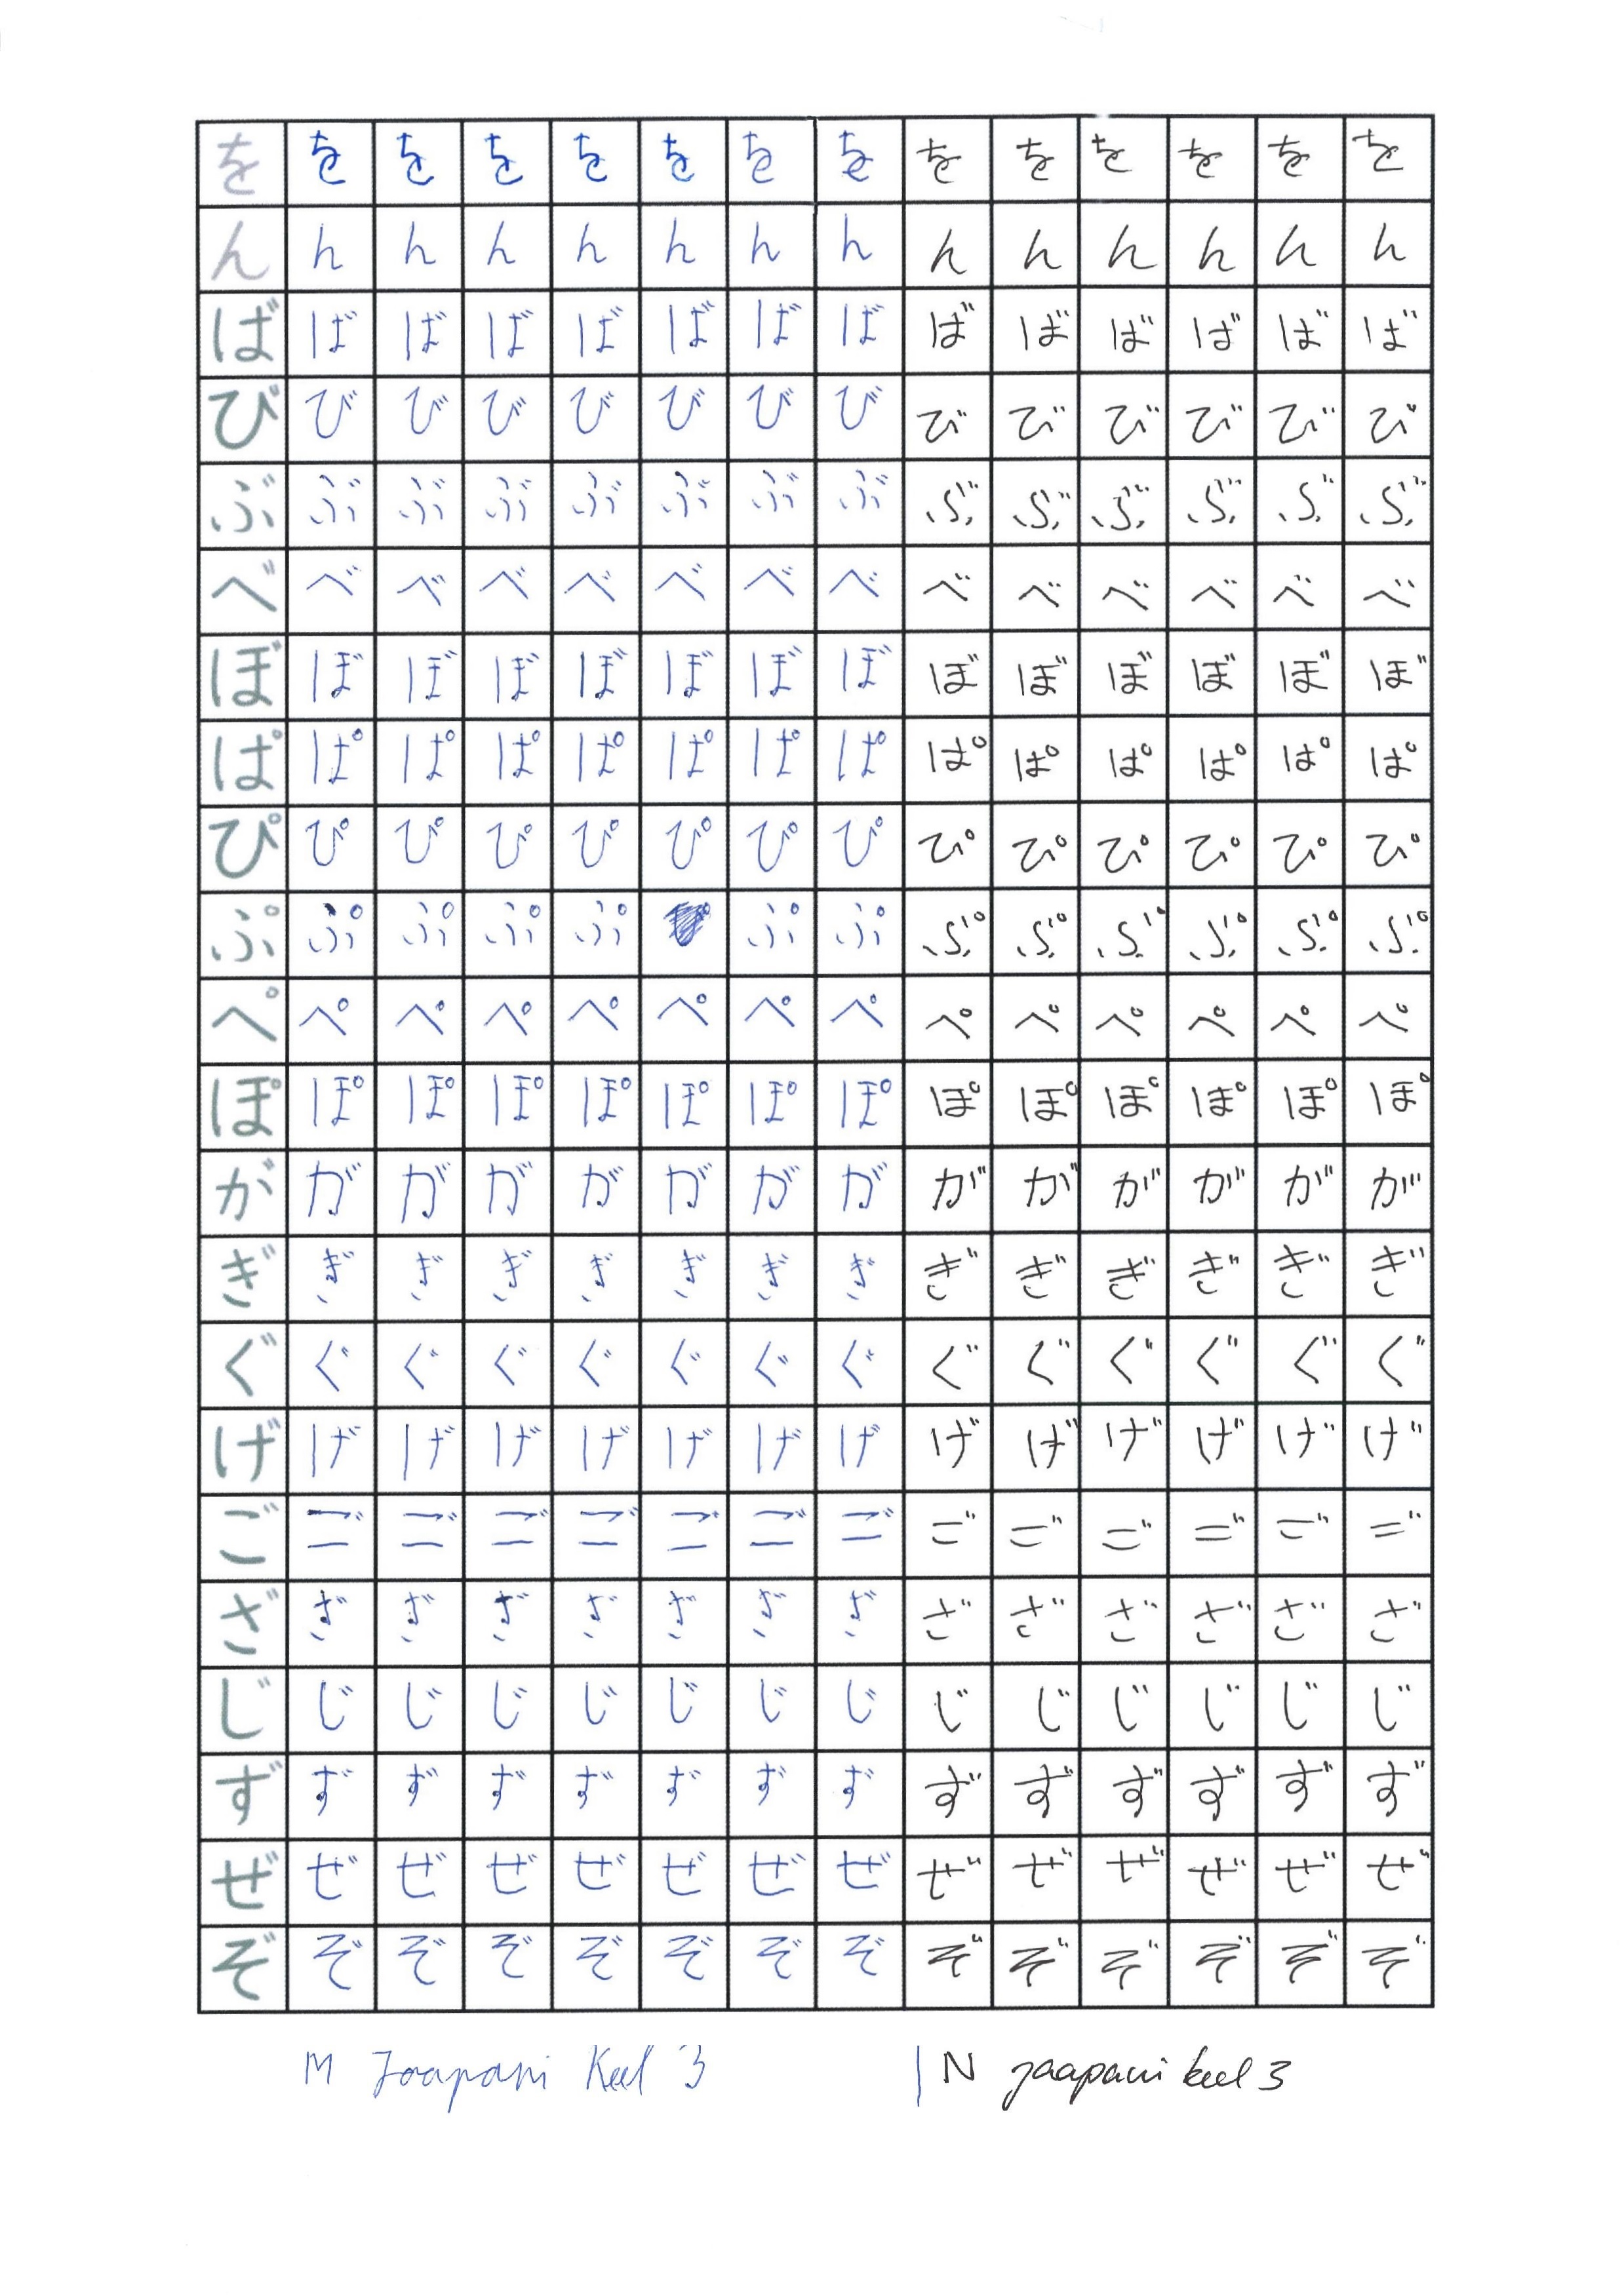 を を を を を を を を を を を を を を
ん ん ん ん ん ん ん ん ん ん ん ん ん ん
ば ば ば ば ば ば ば ば ば ば ば ば ば ば
び び び び び び び び び び び び び び
ぶ ぶ ぶ ぶ ぶ ぶ ぶ ぶ ぶ ぶ ぶ ぶ ぶ ぶ
べ べ べ べ べ べ べ べ べ べ べ べ べ べ
ぼ ぼ ぼ ぼ ぼ ぼ ぼ ぼ ぼ ぼ ぼ ぼ ぼ ぼ
ぱ ぱ ぱ ぱ ぱ ぱ ぱ ぱ ぱ ぱ ぱ ぱ ぱ ぱ
ぴ ぴ ぴ ぴ ぴ ぴ ぴ ぴ ぴ ぴ ぴ ぴ ぴ ぴ
ぷ ぷ ぷ ぷ ぷ ぷ ぷ ぷ ぷ ぷ ぷ ぷ ぷ
ぺ ぺ ぺ ぺ ぺ ぺ ぺ ぺ ぺ ぺ ぺ ぺ ぺ ぺ
ぽ ぽ ぽ ぽ ぽ ぽ ぽ ぽ ぽ ぽ ぽ ぽ ぽ ぽ
が が が が が が が が が が が が が が
ぎ ぎ ぎ ぎ ぎ ぎ ぎ ぎ ぎ ぎ ぎ ぎ ぎ ぎ
ぐ ぐ ぐ ぐ ぐ ぐ ぐ ぐ ぐ ぐ ぐ ぐ ぐ ぐ
げ げ げ げ げ げ げ げ げ げ げ げ げ げ
ご ご ご ご ご ご ご ご ご ご ご ご ご ご
ざ ざ ざ ざ ざ ざ ざ ざ ざ ざ ざ ざ ざ ざ
じ じ じ じ じ じ じ じ じ じ じ じ じ じ
ず ず ず ず ず ず ず ず ず ず ず ず ず ず
ぜ ぜ ぜ ぜ ぜ ぜ ぜ ぜ ぜ ぜ ぜ ぜ ぜ ぜ
ぞ ぞ ぞ ぞ ぞ ぞ ぞ ぞ ぞ ぞ ぞ ぞ ぞ ぞ
M Jaapani Keel 3 | N jaapani keel 3